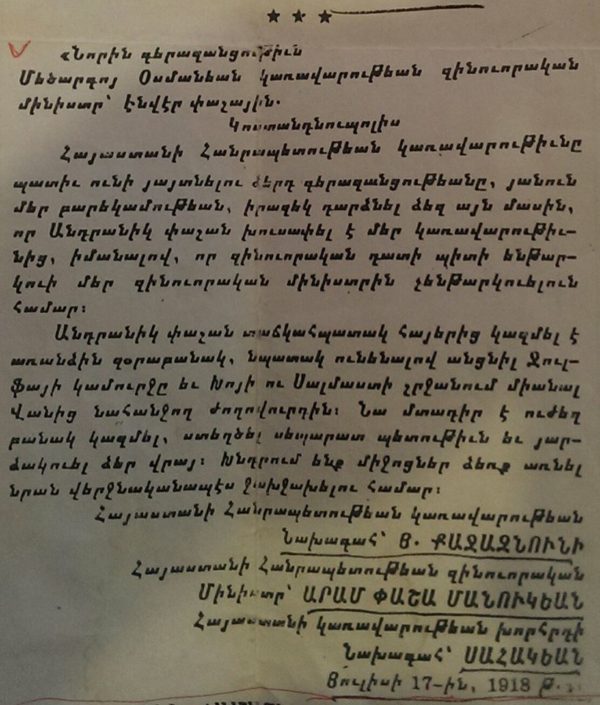 ★ ★ ★
«Նորին գերազանցութիւն
Մեծարգոյ Օսմանեան կառավարութեան զինուորական
մինիստր՝ Էնվէր փաշային.
Կոստանդնուպոլիս
Հայաստանի Հանրապետութեան կառավարութիւնը
պատիւ ունի յայտնելու ձերդ գերազանցութեանը, յանուն
մեր բարեկամութեան, իրազեկ դարձնել ձեզ այն մասին,
որ Անդրանիկ փաշան խուսափել է մեր կառավարութիւ-
նից, իմանալով, որ զինուորական դատի պիտի ենթար-
կուի մեր զինուորական մինիստրին չենթարկուելուն
համար։
Անդրանիկ փաշան տաճկահպատակ հայերից կազմել է
առանձին զօրաբանակ, նպատակ ունենալով անցնիլ Ջուլ-
ֆայի կամուրջը եւ Խոյի ու Սալմաստի շրջանում միանալ
Վանից նահանջող ժողովուրդին։ Նա մտադիր է ուժեղ
բանակ կազմել, ստեղծել սեպարատ պետութիւն եւ յար-
ձակուել ձեր վրայ։ Խնդրում ենք միջոցներ ձեռք առնել
նրան վերջնականապէս ջախջախելու համար։
Հայաստանի Հանրապետութեան կառավարութեան
Նախագահ՝ Յ. ՔԱՋԱԶՆՈՒՆԻ
Հայաստանի Հանրապետութեան զինուորական
Մինիստր՝ ԱՐԱՄ ՓԱՇԱ ՄԱՆՈՒԿԵԱՆ
Հայաստանի կառավարութեան խորհրդի
Նախագահ՝ ՍԱՀԱԿԵԱՆ
Յուլիսի 17-ին, 1918 թ.